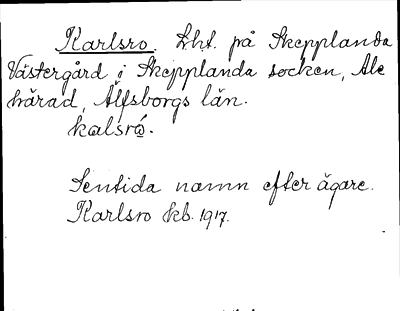 Karlsro. Lht. på Skepplanda
Västergård i Skepplanda socken, Ale
härad, Älfsborgs län.
kalsró.
Sentida namn efter ägare.
Karlsro kb. 1917.